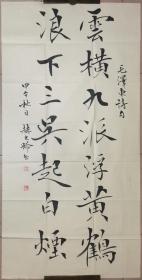 雲橫九派浮黃鶴
浪下三吳起白煙
毛澤東詩句
甲午秋日